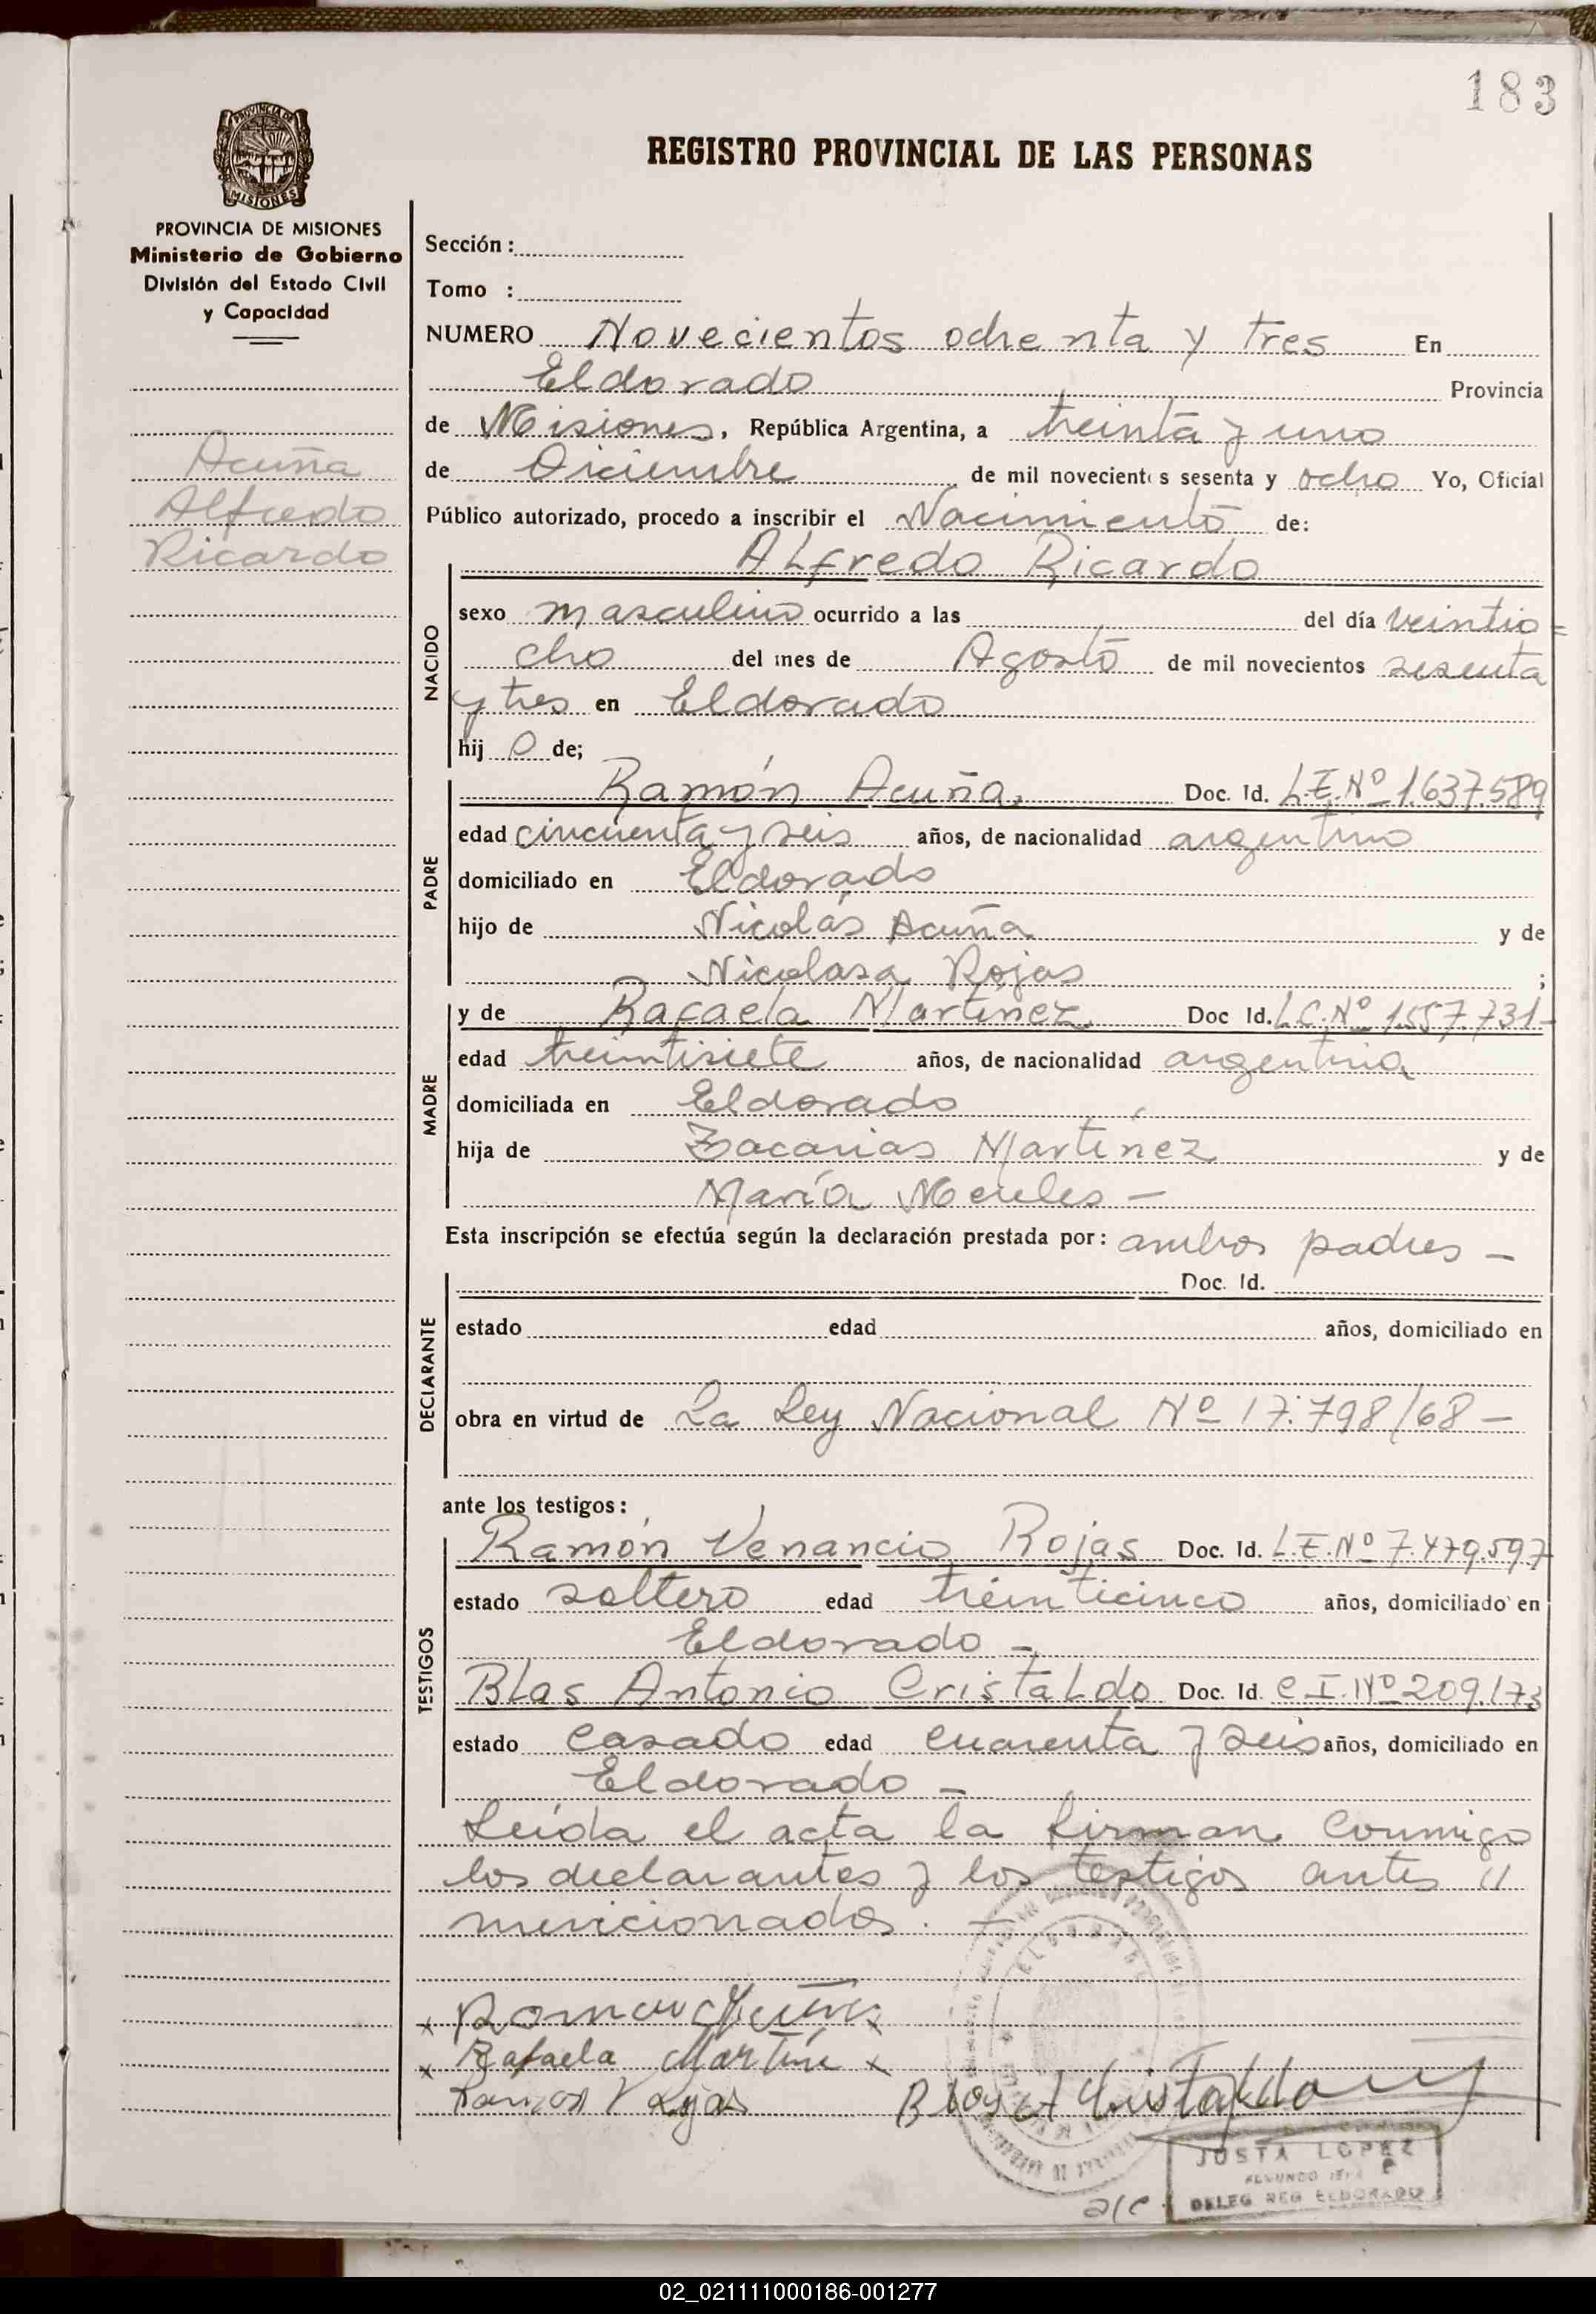 183
PROVINCIA DE
MISIONES
REGISTRO PROVINCIAL DE LAS PERSONAS
PROVINCIA DE MISIONES
Ministerio de Gobierno
División del Estado Civil
y Capacidad
Acuña
Alfredo
Ricardo
Sección :
Tomo :
NUMERO Novecientos ochenta y tres En
Eldorado Provincia
de Misiones, República Argentina, a treinta y uno
de Diciembre de mil novecientos sesenta y ocho Yo, Oficial
Público autorizado, procedo a inscribir el Nacimiento de:
Alfredo Ricardo
NACIDO
sexo masculino ocurrido a las del día veintio=
cho del mes de Agosto de mil novecientos sesenta
y tres en Eldorado
hij o de;
PADRE
Ramón Acuña, Doc. Id. L.E. Nº 1.637.589
edad cincuenta y seis años, de nacionalidad argentino
domiciliado en Eldorado
hijo de Nicolás Acuña y de
Nicolasa Rojas ;
MADRE
y de Rafaela Martínez Doc Id. L.C. Nº 1.557.731-
edad treintisiete años, de nacionalidad argentina
domiciliada en Eldorado
hija de Zacarias Martínez y de
María Meules -
Esta inscripción se efectúa según la declaración prestada por: ambos padres -
DECLARANTE
Doc. Id.
estado edad años, domiciliado en
obra en virtud de La Ley Nacional Nº 17.798/68 -
ante los testigos:
TESTIGOS
Ramón Venancio Rojas Doc. Id. L.E. Nº 7.479.597
estado soltero edad treinticinco años, domiciliado en
Eldorado -
Blas Antonio Cristaldo Doc. Id. C.I. Nº 209.173
estado casado edad cuarenta y seis años, domiciliado en
Eldorado -
Leída el acta la firman conmigo
los declarantes y los testigos antes "
mencionados. -
x Roman Acuña x
x Rafaela Martine x
Ramon V Rojas Blas A Cristaldo
JUSTA LOPEZ
DELEG REG ELDORADO
a/c
02_021111000186-001277